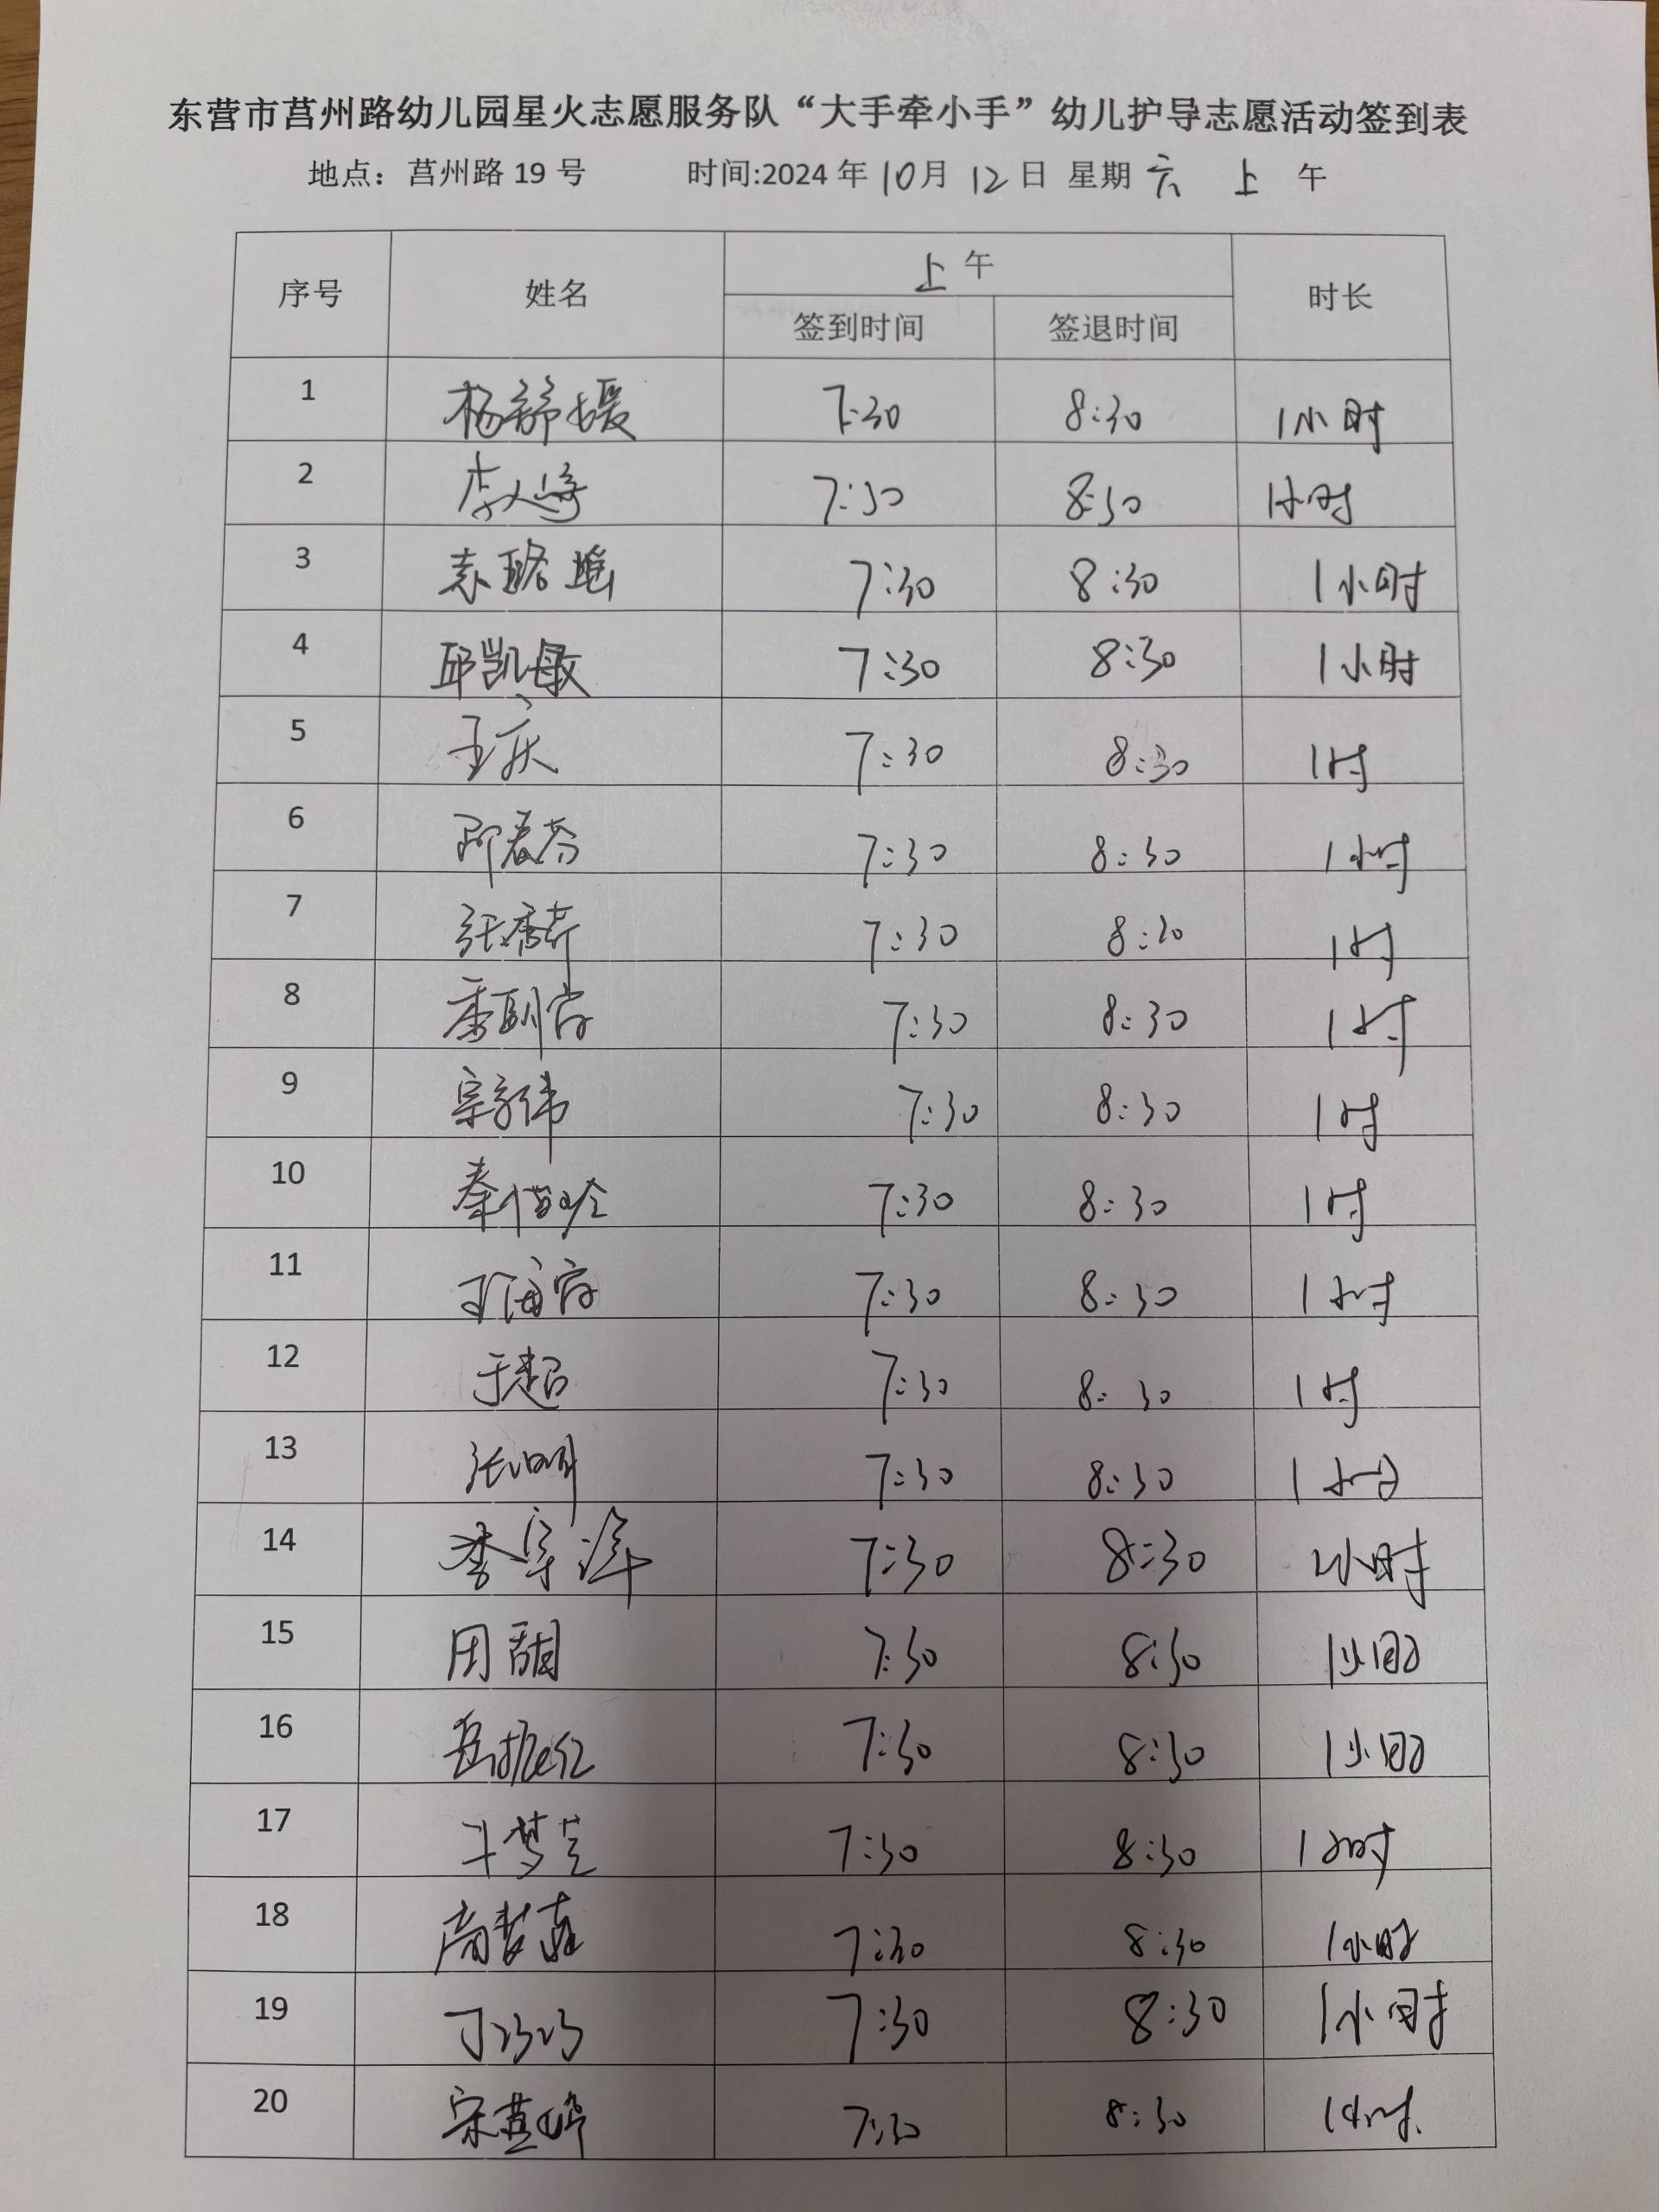 东营市莒州路幼儿园星火志愿服务队“大手牵小手”幼儿护导志愿活动签到表
地点：莒州路 19 号 时间:2024 年 10 月 12 日 星期 六 上 午
序号 姓名 上 午 时长
签到时间 签退时间
1 杨舒媛 7:30 8:30 1小时
2 李 7:30 8:30 1小时
3 袁璐瑶 7:30 8:30 1小时
4 邱凯敏 7:30 8:30 1小时
5 王庆 7:30 8:30 1时
6 春芬 7:30 8:30 1小时
7 张 7:30 8:30 1时
8 7:30 8:30 1时
9 宗 伟 7:30 8:30 1时
10 秦 7:30 8:30 1时
11 7:30 8:30 1小时
12 于超 7:30 8:30 1时
13 张明 7:30 8:30 1小时
14 李 7:30 8:30 小时
15 田甜 7:30 8:30 1小时
16 岳振红 7:30 8:30 1小时
17 梦芝 7:30 8:30 1小时
18 梦 7:30 8:30 1小时
19 丁巧巧 7:30 8:30 1小时
20 宋燕 7:30 8:30 1小时